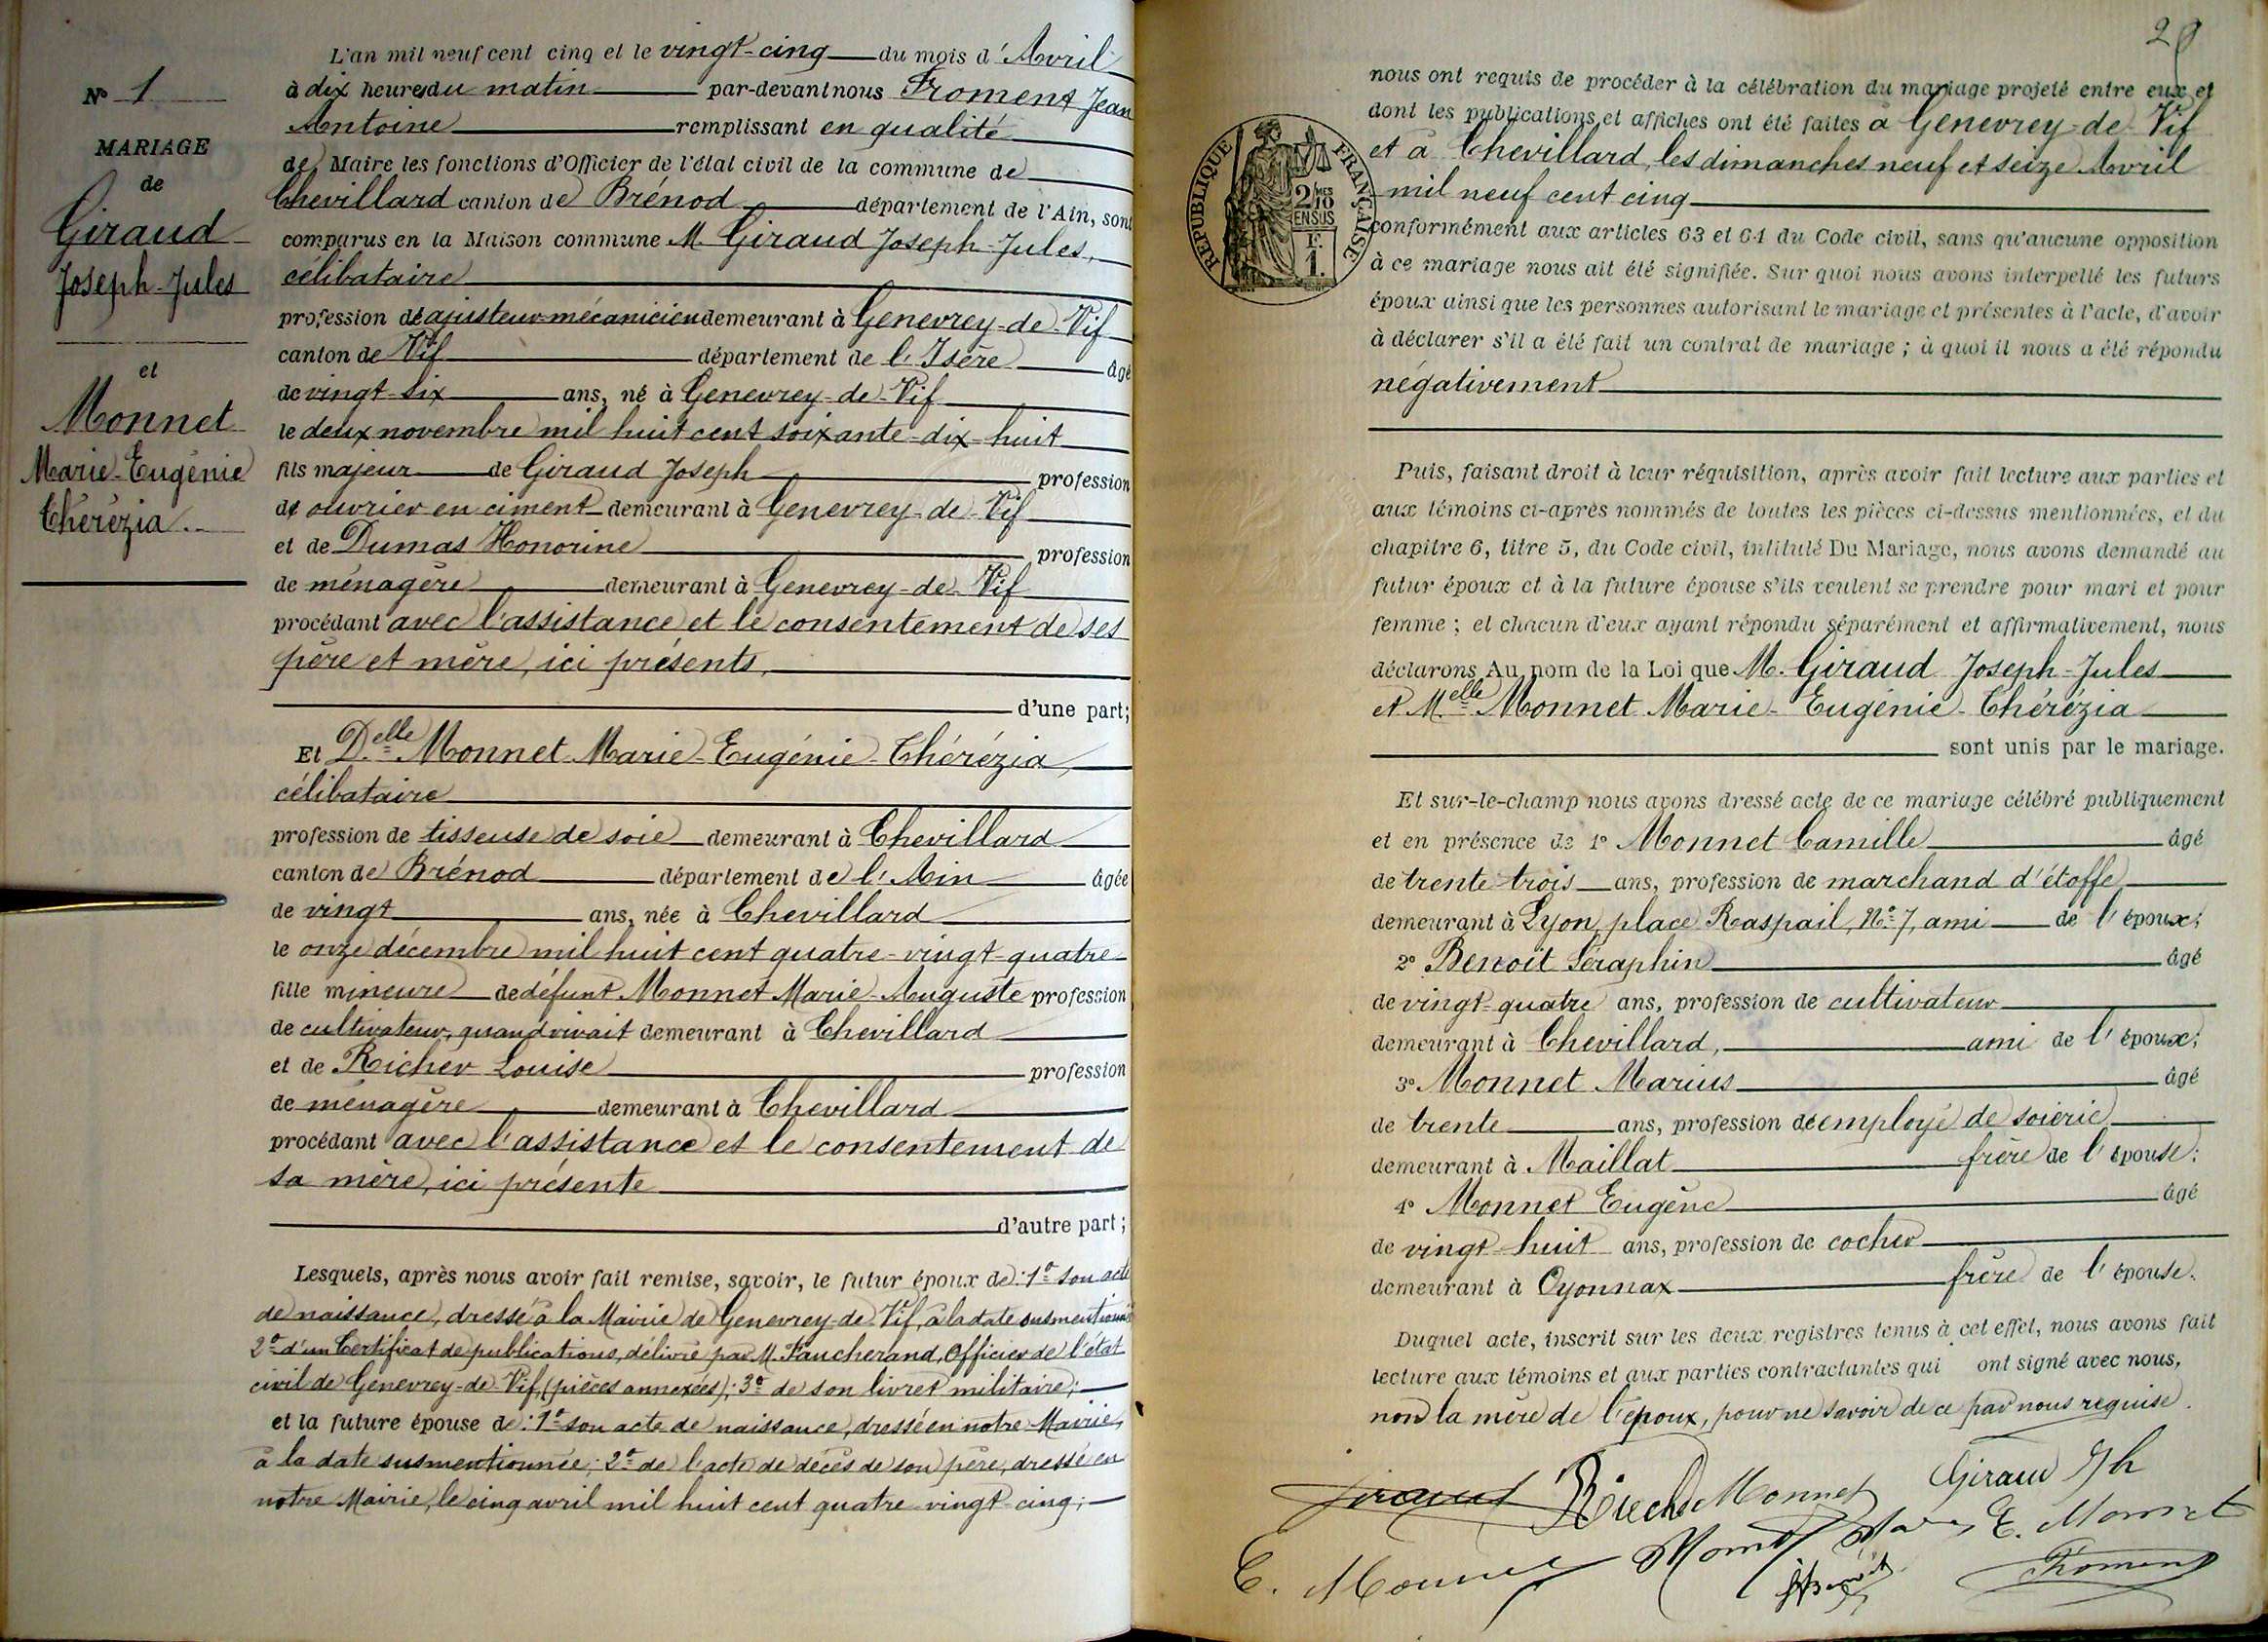 N° 1
MARIAGE
de
Giraud
Joseph-Jules
et
Monnet
Marie-Eugénie
Thérézia.
L'an mil neuf cent cinq et le vingt-cinq du mois d'Avril
à dix heures du matin par-devant nous Froment Jean
Antoine remplissant en qualité
de Maire les fonctions d'Officier de l'état civil de la commune de
Chevillard canton de Brénod département de l'Ain, sont
comparus en la Maison commune M. Giraud Joseph-Jules,
célibataire
profession de ajusteur-mécanicien demeurant à Genevrey-de-Vif
canton de Vif département de l'Isère âgé
de vingt-six ans, né à Genevrey-de-Vif
le deux novembre mil huit cent soixante-dix-huit
fils majeur de Giraud Joseph profession
de ouvrier en ciment demeurant à Genevrey-de-Vif
et de Dumas Honorine profession
de ménagère demeurant à Genevrey-de-Vif
procédant avec l'assistance et le consentement de ses
père et mère, ici présents,
d'une part;
Et Delle Monnet Marie-Eugénie-Thérézia,
célibataire
profession de tisseuse de soie demeurant à Chevillard
canton de Brénod département de l'Ain âgée
de vingt ans, née à Chevillard
le onze décembre mil huit cent quatre-vingt-quatre
fille mineure de défunt Monnet Marie-Auguste profession
de cultivateur, quand vivait demeurant à Chevillard
et de Richer Louise profession
de ménagère demeurant à Chevillard
procédant avec l'assistance et le consentement de
sa mère, ici présente
d'autre part;
Lesquels, après nous avoir fait remise, savoir, le futur époux de: 1° son acte
de naissance, dressé à la Mairie de Genevrey-de-Vif, à la date susmentionnée
2° d'un Certificat de publications, délivré par M. Faucherand, Officier de l'état
civil de Genevrey-de-Vif, (pièces annexées); 3° de son livret militaire;
et la future épouse de: 1° son acte de naissance, dressé en notre Mairie,
à la date susmentionnée; 2° de l'acte de décès de son père, dressé en
notre Mairie, le cinq avril mil huit cent quatre-vingt-cinq;
29
RÉPUBLIQUE FRANÇAISE
2/10 MES
EN SUS
1 F.
nous ont requis de procéder à la célébration du mariage projeté entre eux et
dont les publications et affiches ont été faites à Genevrey-de-Vif
et à Chevillard, les dimanches neuf et seize Avril
mil neuf cent cinq
conformément aux articles 63 et 64 du Code civil, sans qu'aucune opposition
à ce mariage nous ait été signifiée. Sur quoi nous avons interpellé les futurs
époux ainsi que les personnes autorisant le mariage et présentes à l'acte, d'avoir
à déclarer s'il a été fait un contrat de mariage; à quoi il nous a été répondu
négativement
Puis, faisant droit à leur réquisition, après avoir fait lecture aux parties et
aux témoins ci-après nommés de toutes les pièces ci-dessus mentionnées, et du
chapitre 6, titre 5, du Code civil, intitulé Du Mariage, nous avons demandé au
futur époux et à la future épouse s'ils veulent se prendre pour mari et pour
femme; et chacun d'eux ayant répondu séparément et affirmativement, nous
déclarons Au nom de la Loi que M. Giraud Joseph-Jules
et Melle Monnet Marie-Eugénie-Thérézia
sont unis par le mariage.
Et sur-le-champ nous avons dressé acte de ce mariage célébré publiquement
et en présence de 1° Monnet Camille âgé
de trente-trois ans, profession de marchand d'étoffe
demeurant à Lyon, place Raspail, N° 7, ami de l'époux;
2° Benoit Séraphin âgé
de vingt-quatre ans, profession de cultivateur
demeurant à Chevillard, ami de l'époux;
3° Monnet Marius âgé
de trente ans, profession de employé de soierie
demeurant à Maillat frère de l'épouse;
4° Monnet Eugène âgé
de vingt-huit ans, profession de cocher
demeurant à Oyonnax frère de l'épouse.
Duquel acte, inscrit sur les deux registres tenus à cet effet, nous avons fait
lecture aux témoins et aux parties contractantes qui ont signé avec nous,
non la mère de l'époux, pour ne savoir de ce par nous requise.
Giraud Monnet Giraud Jh
E. Monnet
C. Monnet Froment